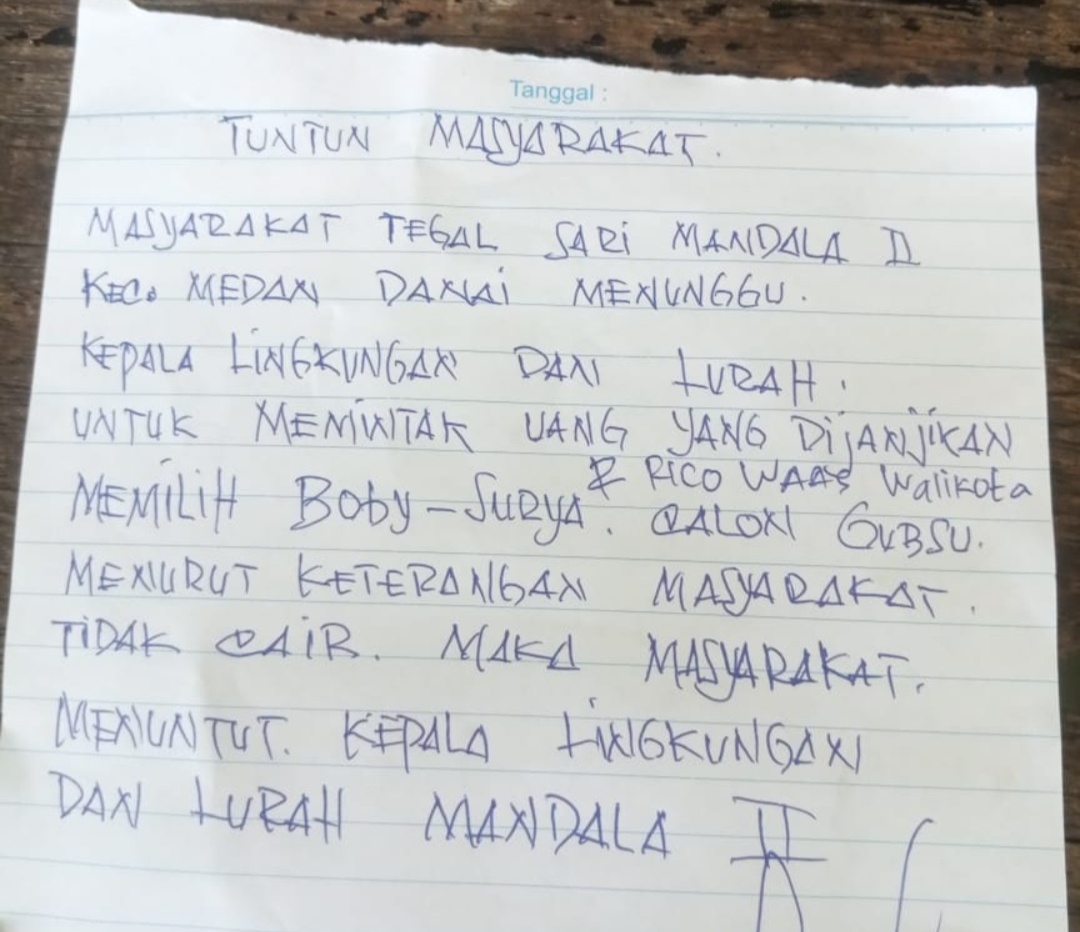 Tanggal :
TUNTUN MASYARAKAT.
MASYARAKAT TEGAL SARI MANDALA II
KEC. MEDAN DANAI MENUNGGU.
KEPALA LINGKUNGAN DAN LURAH.
UNTUK MEMINTAK UANG YANG DIJANJIKAN
& RICO WAAS Walikota
MEMILIH BOBY - SURYA. CALON GUBSU.
MENURUT KETERANGAN MASYARAKAT.
TIDAK CAIR. MAKA MASYARAKAT.
MENUNTUT. KEPALA LINGKUNGAN
DAN LURAH MANDALA II